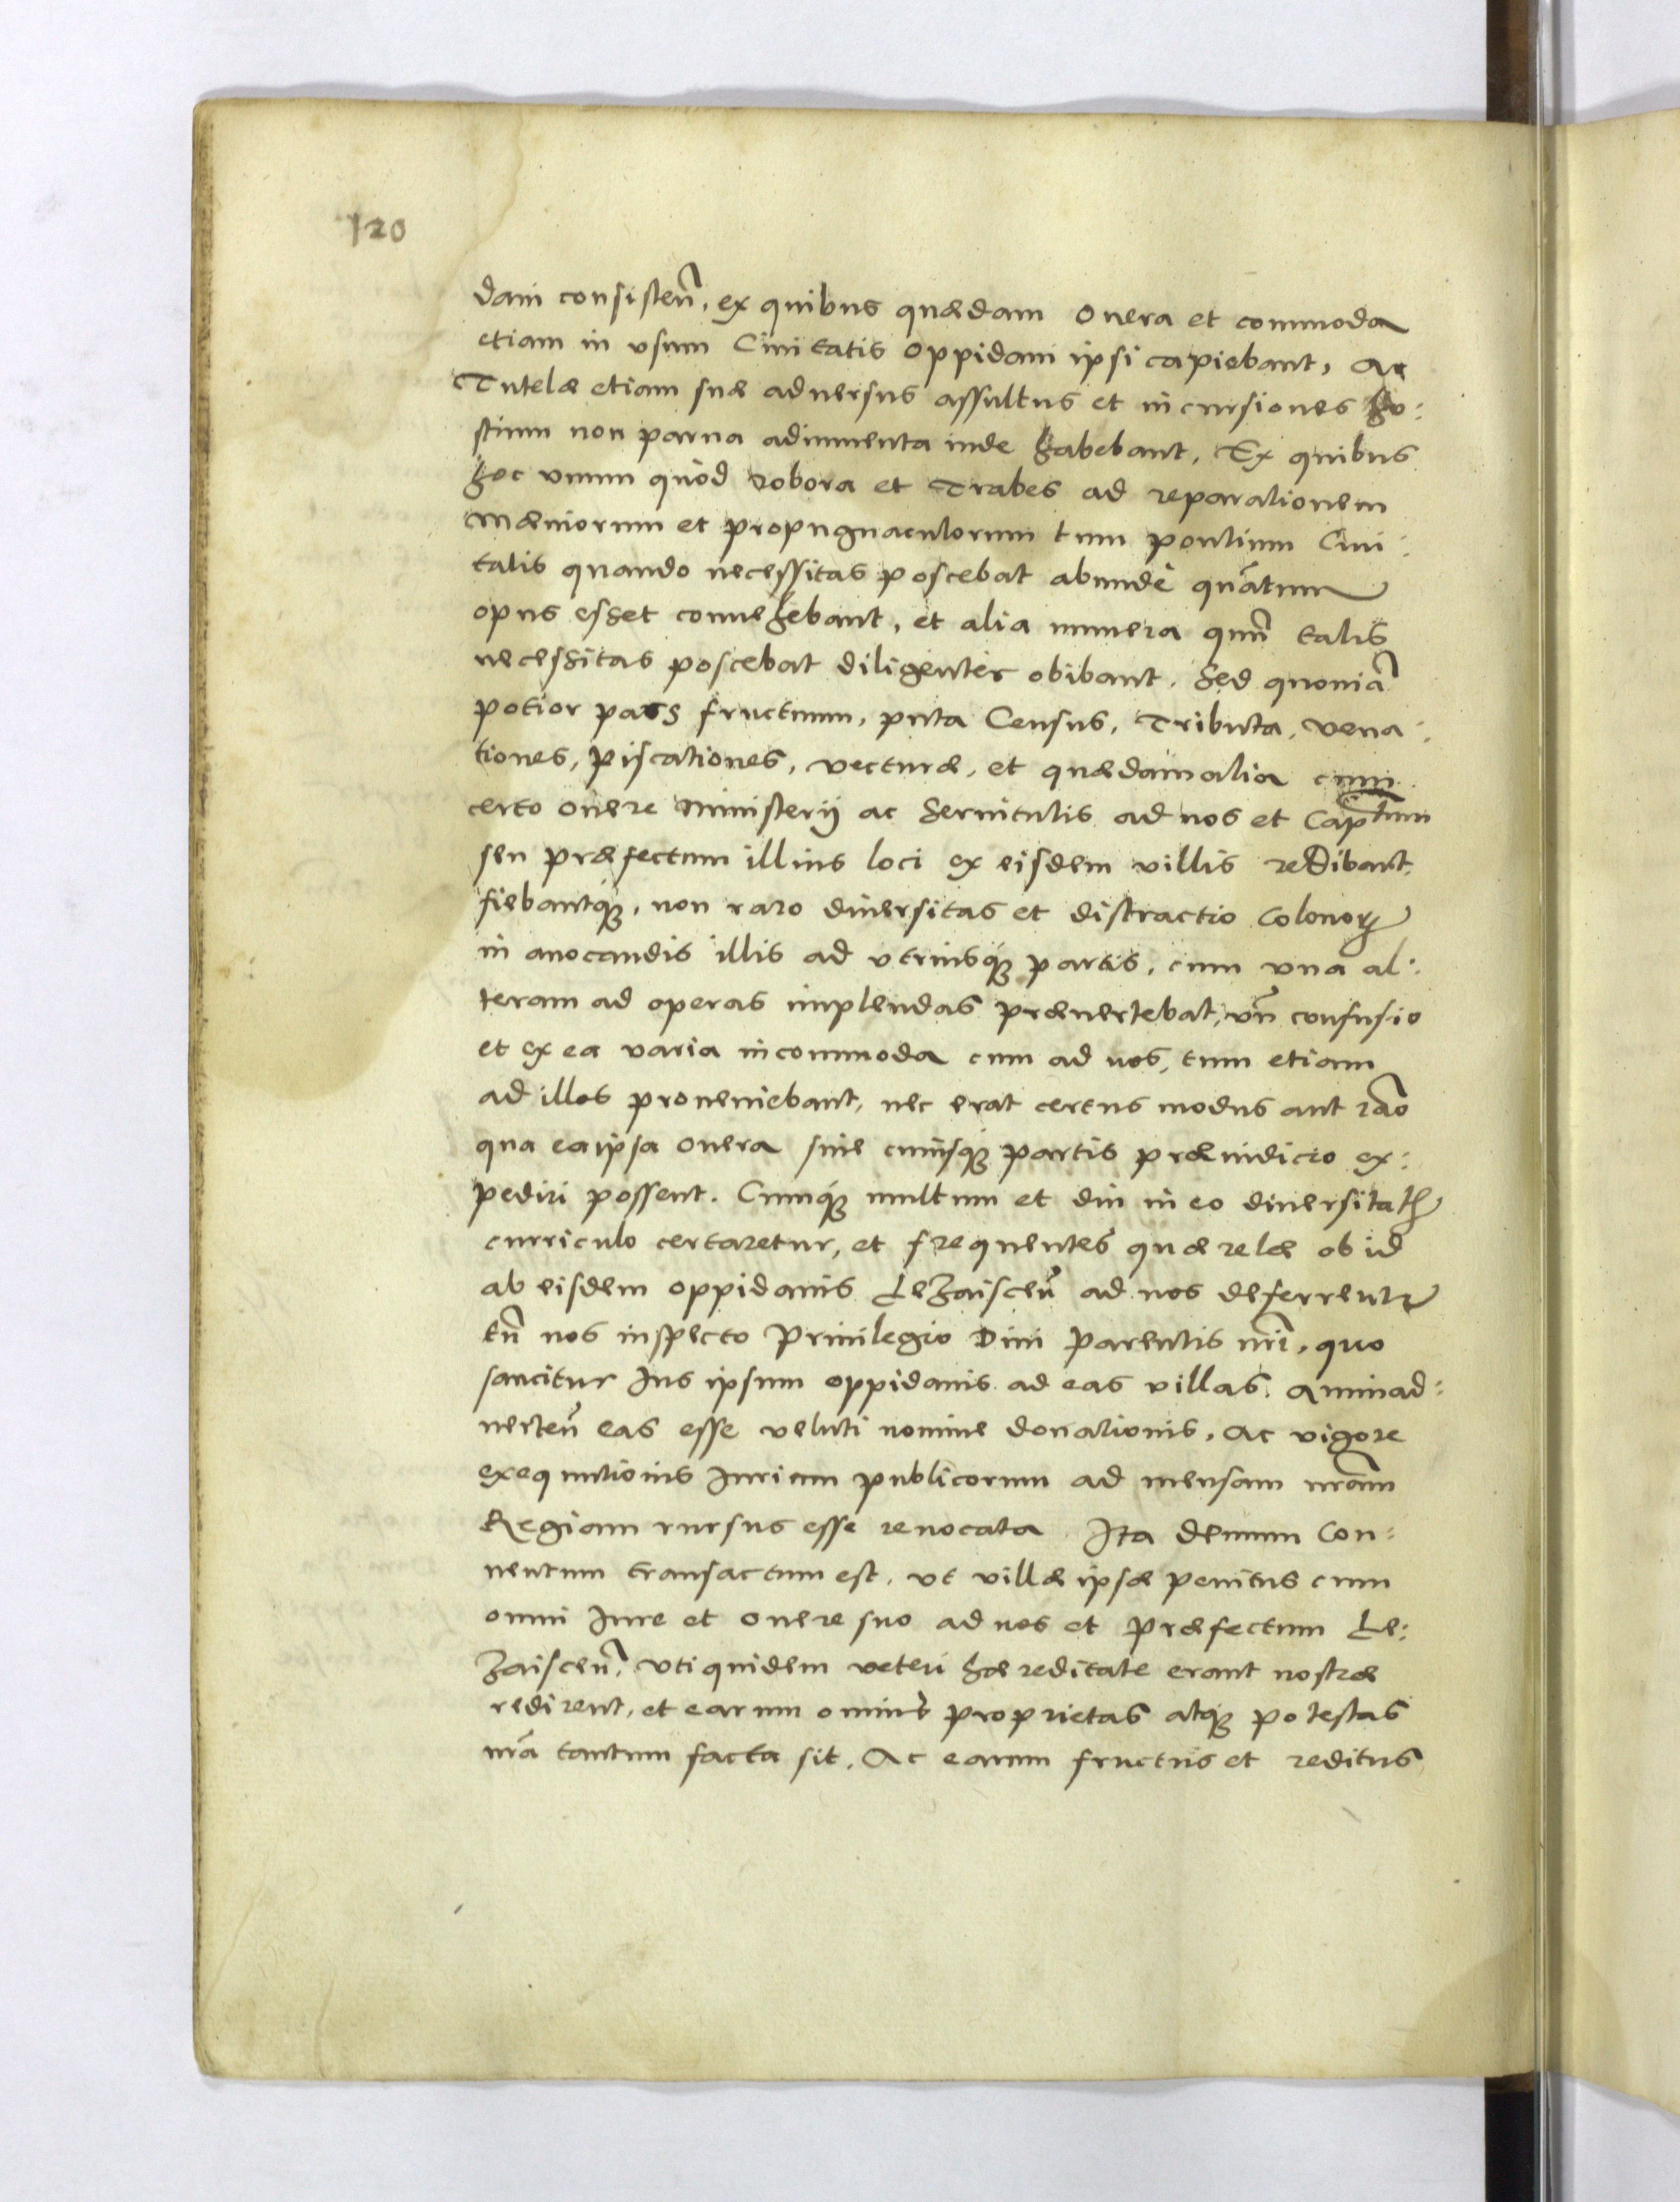 120
dam consisteñ, ex quibus quædam onera et commoda
etiam in vsum Ciuitatis oppidani ipsi capiebant, Ac
Tutelæ etiam suæ aduersus assultus et incursiones ho:
stium non parua adiumenta inde habebant, Ex quibus
hoc vnum quòd robora et Trabes ad reparationem
mæniorum et propugnaculorum tum pontium Ciui:
tatis quando necessitas poscebat abundè quātum
opus esset conuehebant, et alia munera quñ talis
necessitas poscebat diligenter obibant. Sed quoniā
potior pars fructuum, puta Census, Tributa, vena:
tiones, piscationes, vecturæ, et quædam alia cum
certo onere Ministerij ac Seruitutis ad nos et Capītum
seu præfectum illius loci ex eisdem villis redibant,
fiebantq́ꝫ, non raro diuersitas et distractio Colonoꝝ
in auocandis illis ad vtriusq́ꝫ partis, cum vna al:
teram ad operas implendas præuertebat, vñ confusio
et ex ea varia incommoda cum ad nos, tum etiam
ad illos proueniebant, nec erat certus modus aut rāo
qua ea ipsa onera siue cuiusq́ꝫ partis præiudicio ex:
pediri possent. Cumq́ꝫ multum et diu in eo diuersitatꝭ
curriculo certaretur, et frequentes quærelæ ob id
ab eisdem oppidanis Leżaisceñ ad nos deferrentꝛ
tñ nos inspecto Priuilegio Diui Parentis nr̃i, quo
sancitur Ius ipsum oppidanis ad eas villas, animad:
uerteñ eas esse veluti nomine donationis, Ac vigore
exequutionis Iurium publicorum ad mensam nr̃am
Regiam rursus esse reuocata Ita demum Con:
uentum transactum est, vt villæ ipsæ penitus cum
omni Iure et onere suo ad nos et Præfectum Le:
żaisceñ, vti quidem veteri hæreditate erant nostræ
redirent, et earum omnis proprietas atqꝫ potestas
nr̃a tantum facta sit, Ac earum fructus et reditus